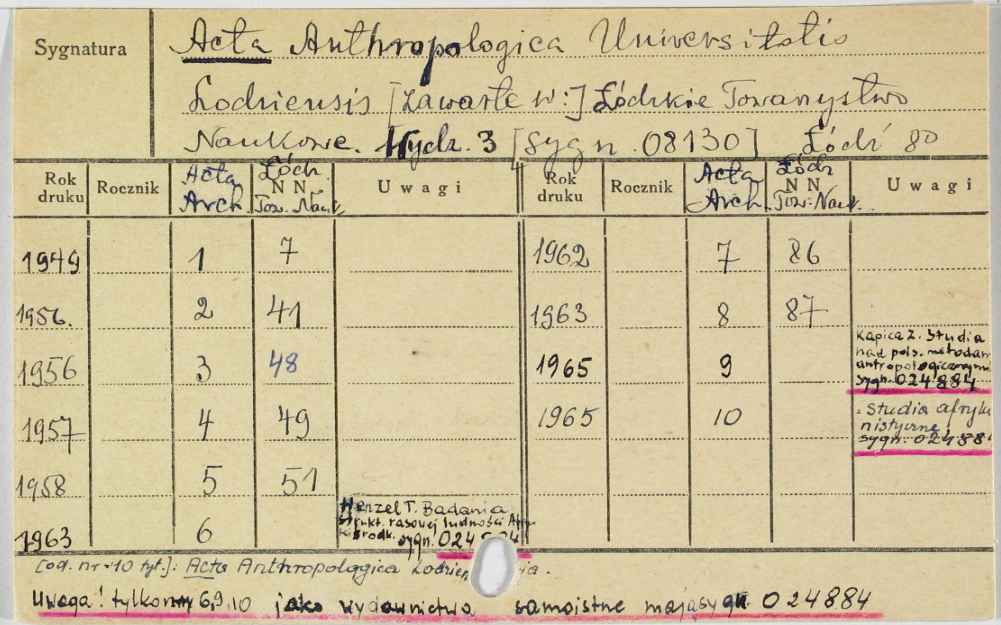 Sygnatura
Acta Anthropologica Universitatis
Lodziensis [zawarte w:] Łódzkie Towarzystwo
Naukowe. Wydz. 3 [sygn. 08130] Łódź 80
Rok druku Rocznik Acta Arch. Łódz. N N Tow. Nauk. Uwagi Rok druku Rocznik Acta Arch. Łódz N N Tow. Nauk. Uwagi
1949 1 7 1962 7 86
1956. 2 41 1963 8 87
1956 3 48 1965 9 Kapica Z. Studia
nad pols. metodami
antropologicznymi
sygn. 024884
1957 4 49 1965 10 Studia afryka
nistyczne
sygn. 024884
1958 5 51
1963 6 Henzel T. Badania
strukt. rasowej ludności
środk. sygn. 024
[od. nr 10 tyt.]: Acta Anthropologica
Uwaga! tylko 6, 9, 10 jako wydawnictwa samoistne mają sygn. 024884